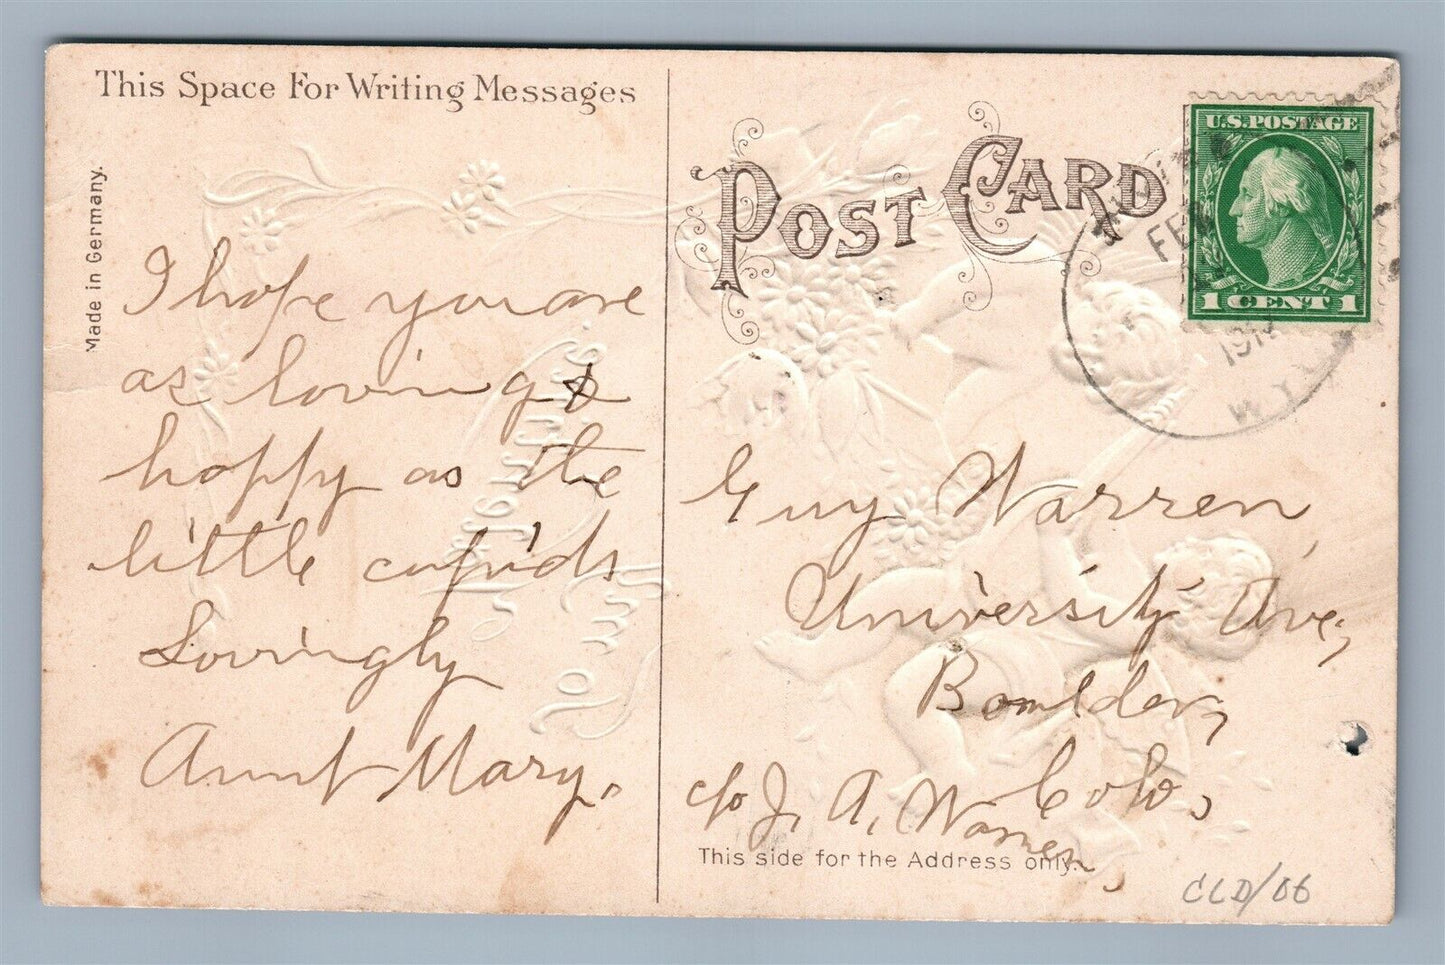 This Space For Writing Messages
Made in Germany.
I hope you are
as loving &
happy as the
little cupids
Lovingly
Aunt Mary.
POST CARD
U.S. POSTAGE
1 CENT 1
FEB
191
WYO
Guy Warren
University Ave,
Boulder,
Colo,
c/o J. A. Warren,
This side for the Address only.
CLD/06